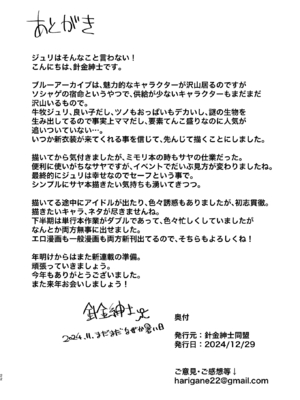 あとがき
ジュリはそんなこと言わない!
こんにちは、針金紳士です。
ブルーアーカイブは、魅力的なキャラクターが沢山居るのですが
ソシャゲの宿命というやつで、供給が少ないキャラクターもまだまだ
沢山いるもので。
牛牧ジュリ、良い子だし、ツノもおっぱいもデカいし、謎の生物を
生み出してるので事実上ママだし、要素てんこ盛りなのに人気が
追いついていない…。
いつか新衣装が来てくれる事を信じて、先んじて描くことにしました。
描いてから気付きましたが、ミモリ本の時もサヤの仕業だった。
便利に使いがちなサヤですが、イベントでだいぶ見方が変わりましたね。
最終的にジュリは幸せなのでセーフという事で。
シンプルにサヤ本描きたい気持ちも湧いてきつつ。
描いてる途中にアイドルが出たり、色々誘惑もありましたが、初志貫徹。
描きたいキャラ、ネタが尽きませんね。
下半期は単行本作業がダブルであって、色々忙しくしていましたが
なんとか両方無事に出せました。
エロ漫画も一般漫画も両方新刊出てるので、そちらもよろしくね!
年明けからはまた新連載の準備。
頑張っていきましょう。
今年もありがとうございました。
また来年お会いしましょう!
針金紳士
2024.11.まだまだなぜか暑い日
奥付
発行元:針金紳士同盟
発行日:2024/12/29
ご意見・ご感想等↓
harigane22@gmail.com